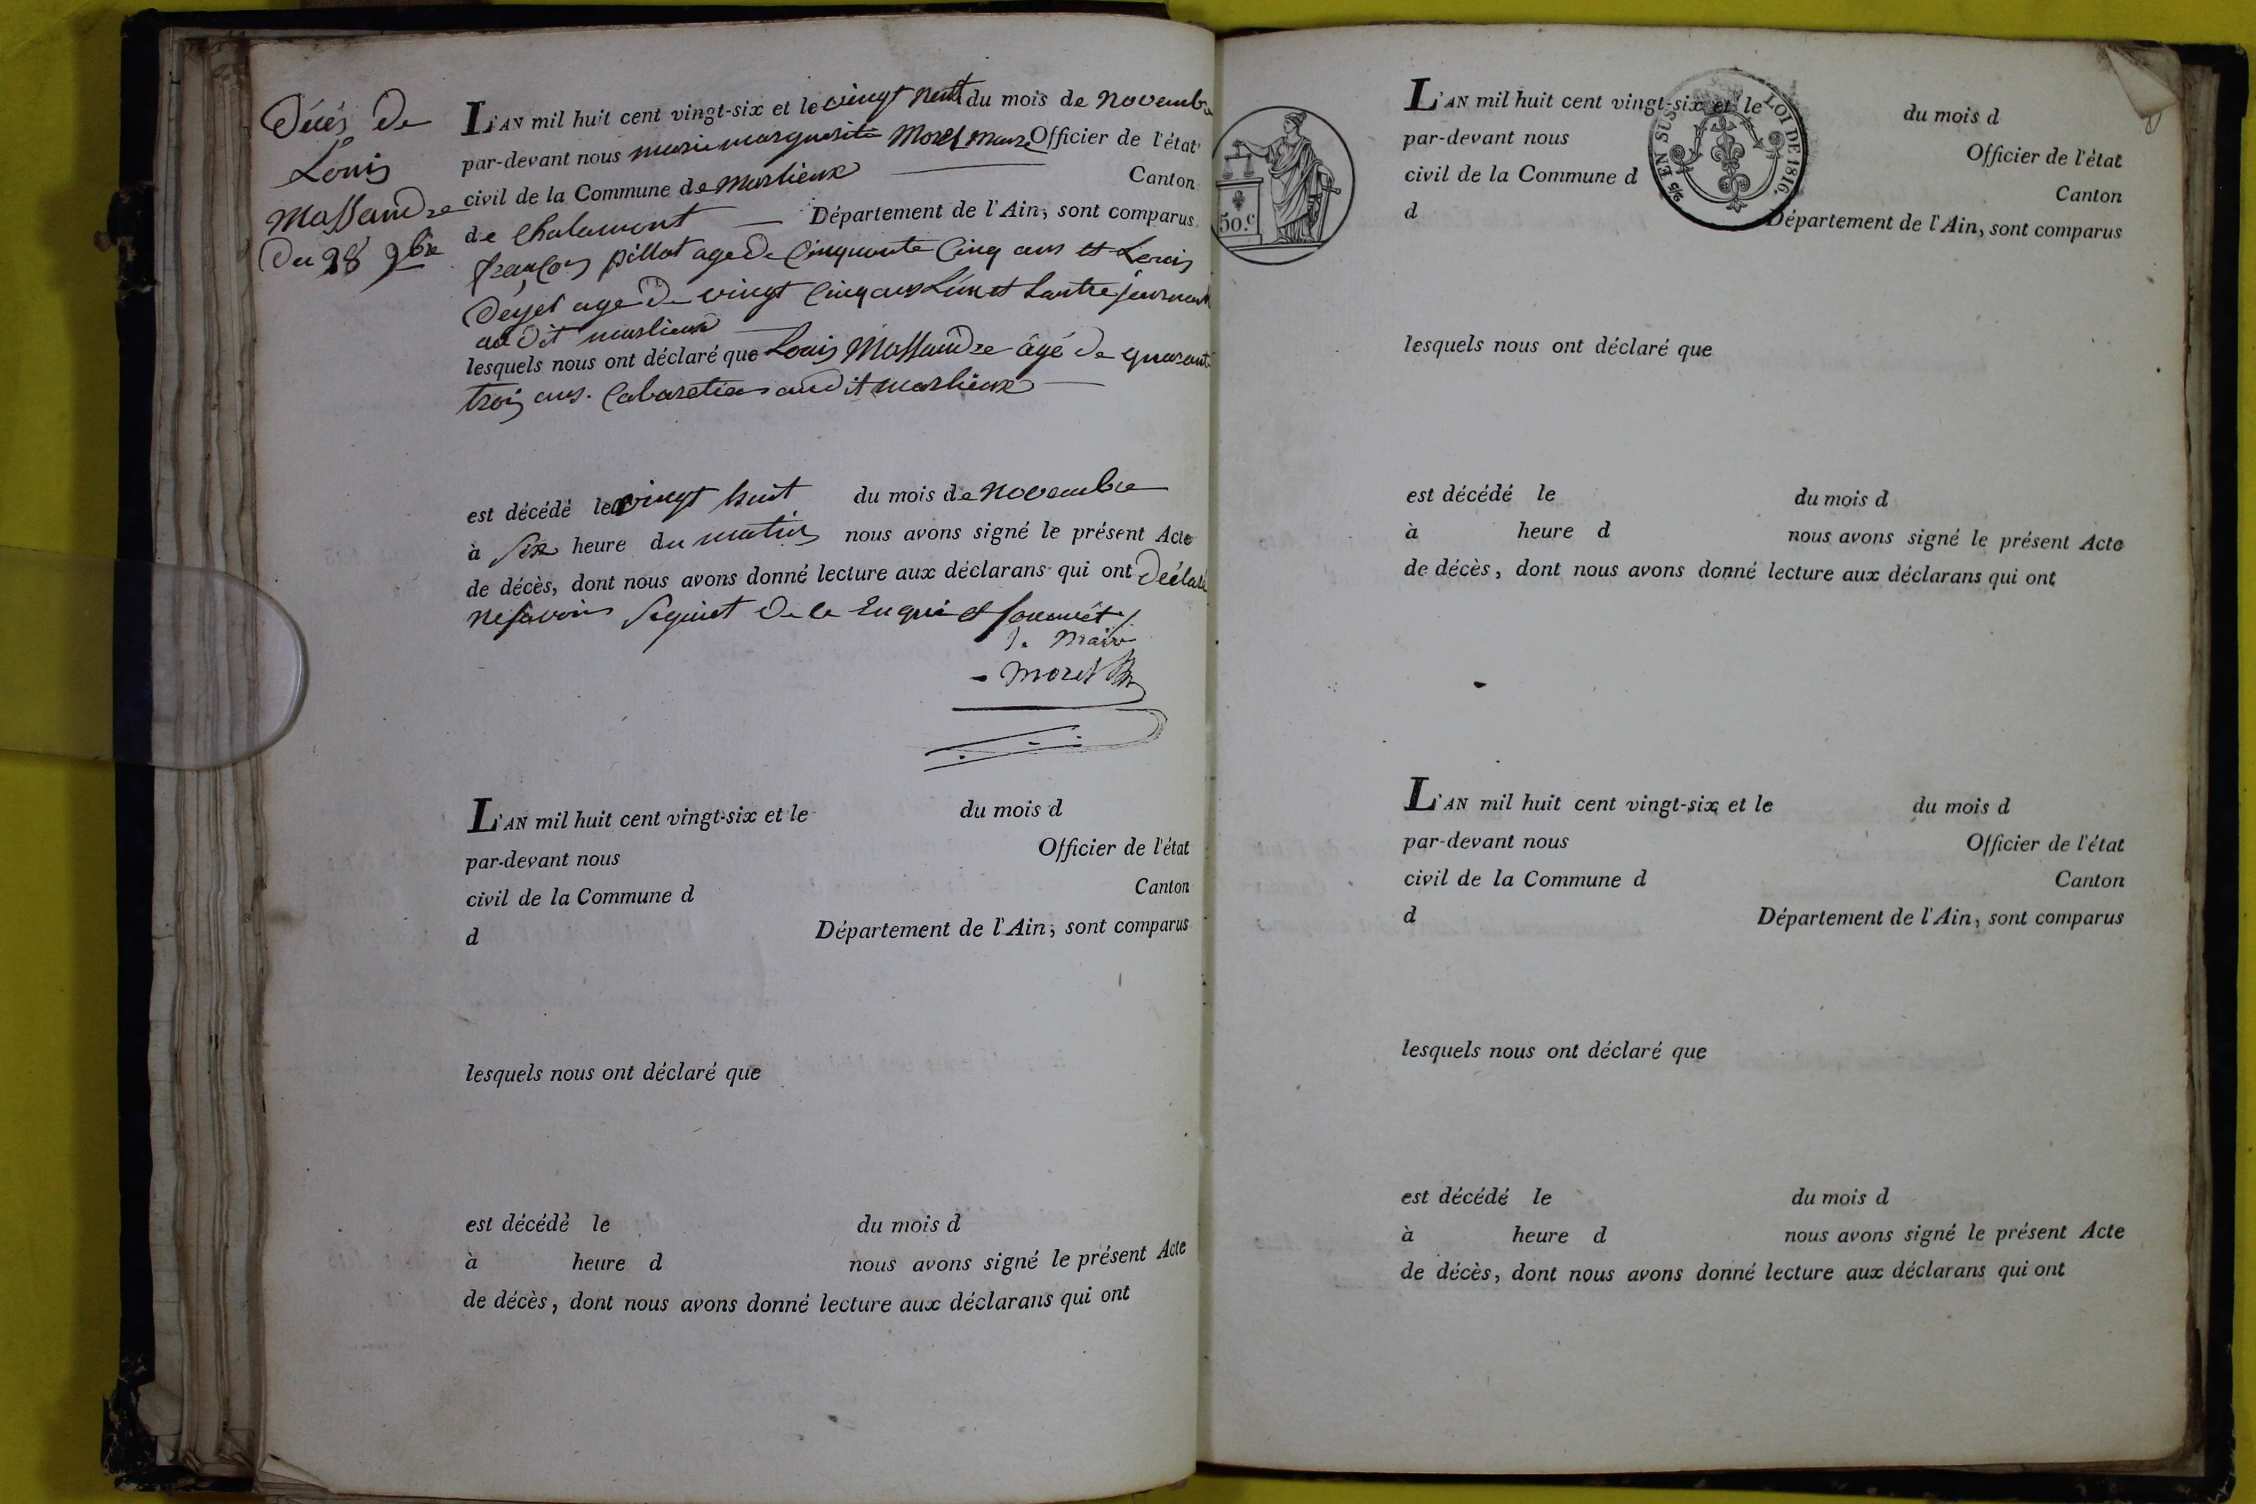 Décès De
Louis
Massandre
Du 28 9bre
L'AN mil huit cent vingt-six et le vingt neuf du mois de novembre
par-devant nous marie marguerite Morel maire Officier de l'état
civil de la Commune de marlieux Canton
de Chalamont Département de l'Ain, sont comparus
françois pillot age De Cinquante Cinq ans et Louis
age De vingt Cinq ans L'un et Lautre
au Dit marlieux
lesquels nous ont déclaré que Louis Massandre âgé De quarante
trois ans. Cabaretier audit marlieux
est décédé le vingt huit du mois de novembre
à six heure du matin nous avons signé le présent Acte
de décès, dont nous avons donné lecture aux déclarans qui ont Déclaré
ne savoir signer De ce Enquis et sommés
le Maire
Morel
L'AN mil huit cent vingt-six et le du mois d
par-devant nous Officier de l'état
civil de la Commune d Canton
d Département de l'Ain, sont comparus
lesquels nous ont déclaré que
est décédé le du mois d
à heure d nous avons signé le présent Acte
de décès, dont nous avons donné lecture aux déclarans qui ont
50.c
EN SUS LOI DE 1816.
L'AN mil huit cent vingt-six et le du mois d
par-devant nous Officier de l'état
civil de la Commune d Canton
d Département de l'Ain, sont comparus
lesquels nous ont déclaré que
est décédé le du mois d
à heure d nous avons signé le présent Acte
de décès, dont nous avons donné lecture aux déclarans qui ont
L'AN mil huit cent vingt-six et le du mois d
par-devant nous Officier de l'état
civil de la Commune d Canton
d Département de l'Ain, sont comparus
lesquels nous ont déclaré que
est décédé le du mois d
à heure d nous avons signé le présent Acte
de décès, dont nous avons donné lecture aux déclarans qui ont